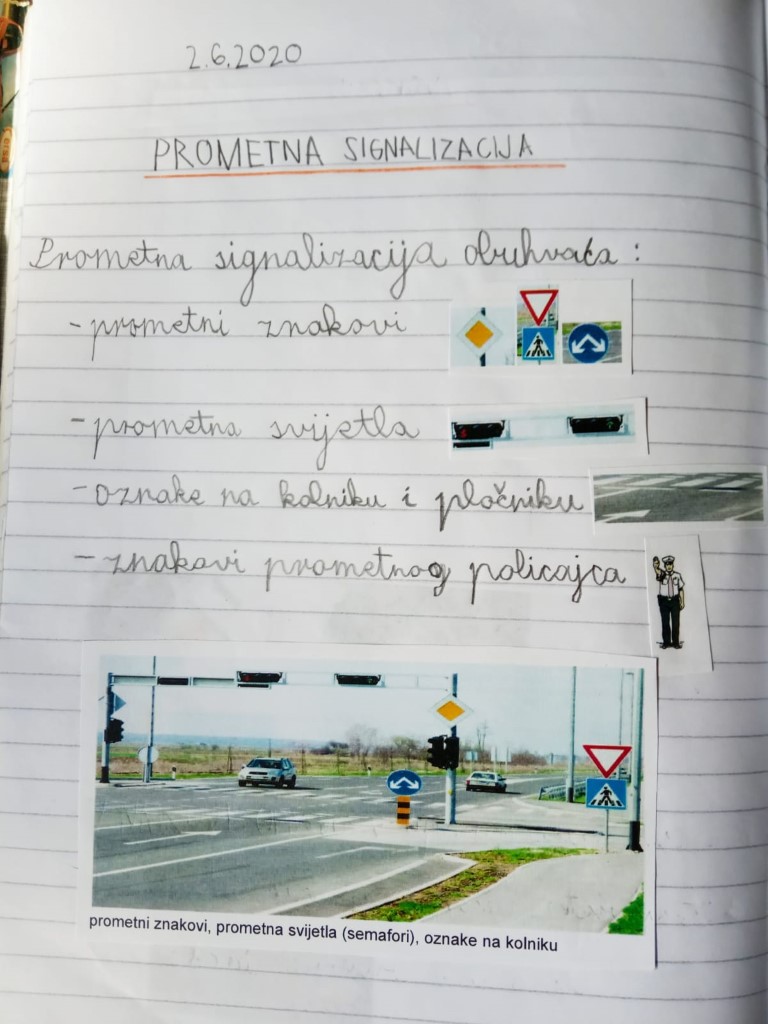 2.6.2020
PROMETNA SIGNALIZACIJA
Prometna signalizacija obuhvaća :
- prometni znakovi
- prometna svijetla
- oznake na kolniku i pločniku
- znakovi prometnog policajca
prometni znakovi, prometna svijetla (semafori), oznake na kolniku